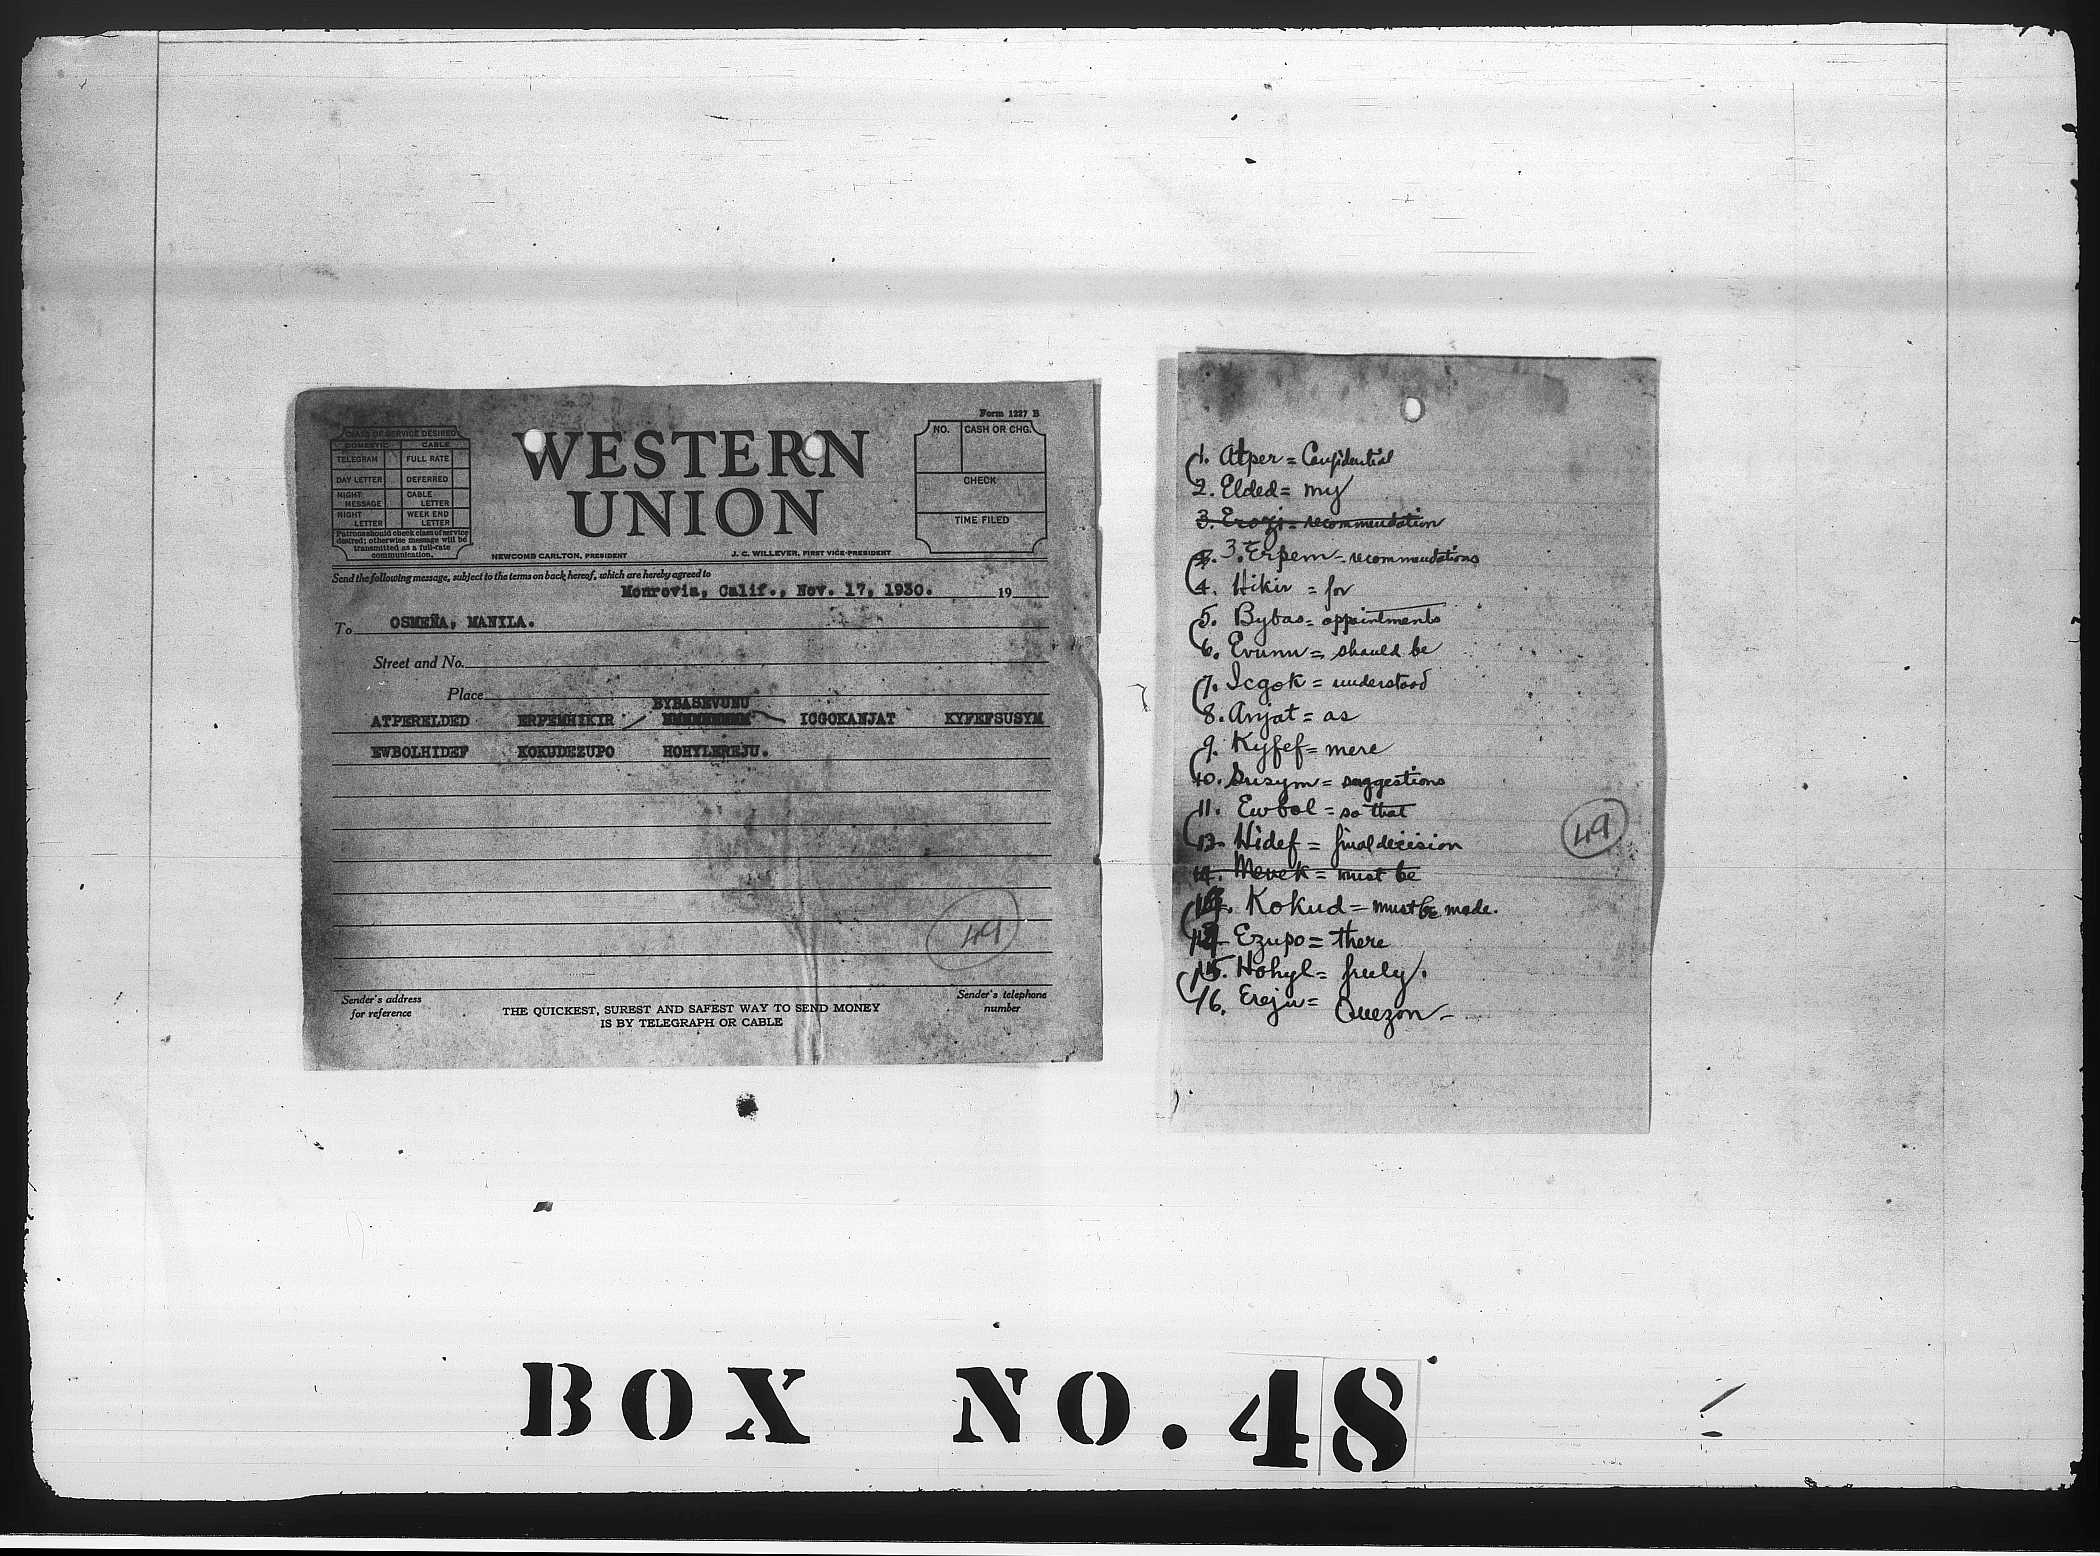 Form 1227 B
CLASS OF SERVICE DESIRED
DOMESTIC CABLE
TELEGRAM FULL RATE
DAY LETTER DEFERRED
NIGHT MESSAGE CABLE LETTER
NIGHT LETTER WEEK END LETTER
Patrons should check class of service
desired; otherwise message will be
transmitted as a full-rate
communication.
WESTERN
UNION
NEWCOMB CARLTON, PRESIDENT J. C. WILLEVER, FIRST VICE-PRESIDENT
NO. CASH OR CHG.
CHECK
TIME FILED
Send the following message, subject to the terms on back hereof, which are hereby agreed to
Monrovia, Calif., Nov. 17, 1930. 19
To OSMEÑA, MANILA.
Street and No.
Place
BYBASEVUNU
ATPERELDED ERPEMHIKIR ICGOKANJAT KYFEFSUSYM
EWBOLHIDEF KOKUDEZUPO HOHYLEREJU.
49
Sender's address
for reference
THE QUICKEST, SUREST AND SAFEST WAY TO SEND MONEY
IS BY TELEGRAPH OR CABLE
Sender's telephone
number
1. Atper = Confidential
2. Elded = my
3. Erozj = recommendation
3. Erpem - recommendations
4. Hikir = for
5. Bybas = appointments
6. Evunu = should be
7. Icgok = understood
8. Anjat = as
9. Kyfef = mere
10. Susym = suggestions
11. Ewbol = so that
12. Hidef = final decision
14. Mevek = must be
13. Kokud = must be made.
14 Ezupo = there
15. Hohyl = freely.
16. Ereju = Quezon -
49
BOX NO. 48